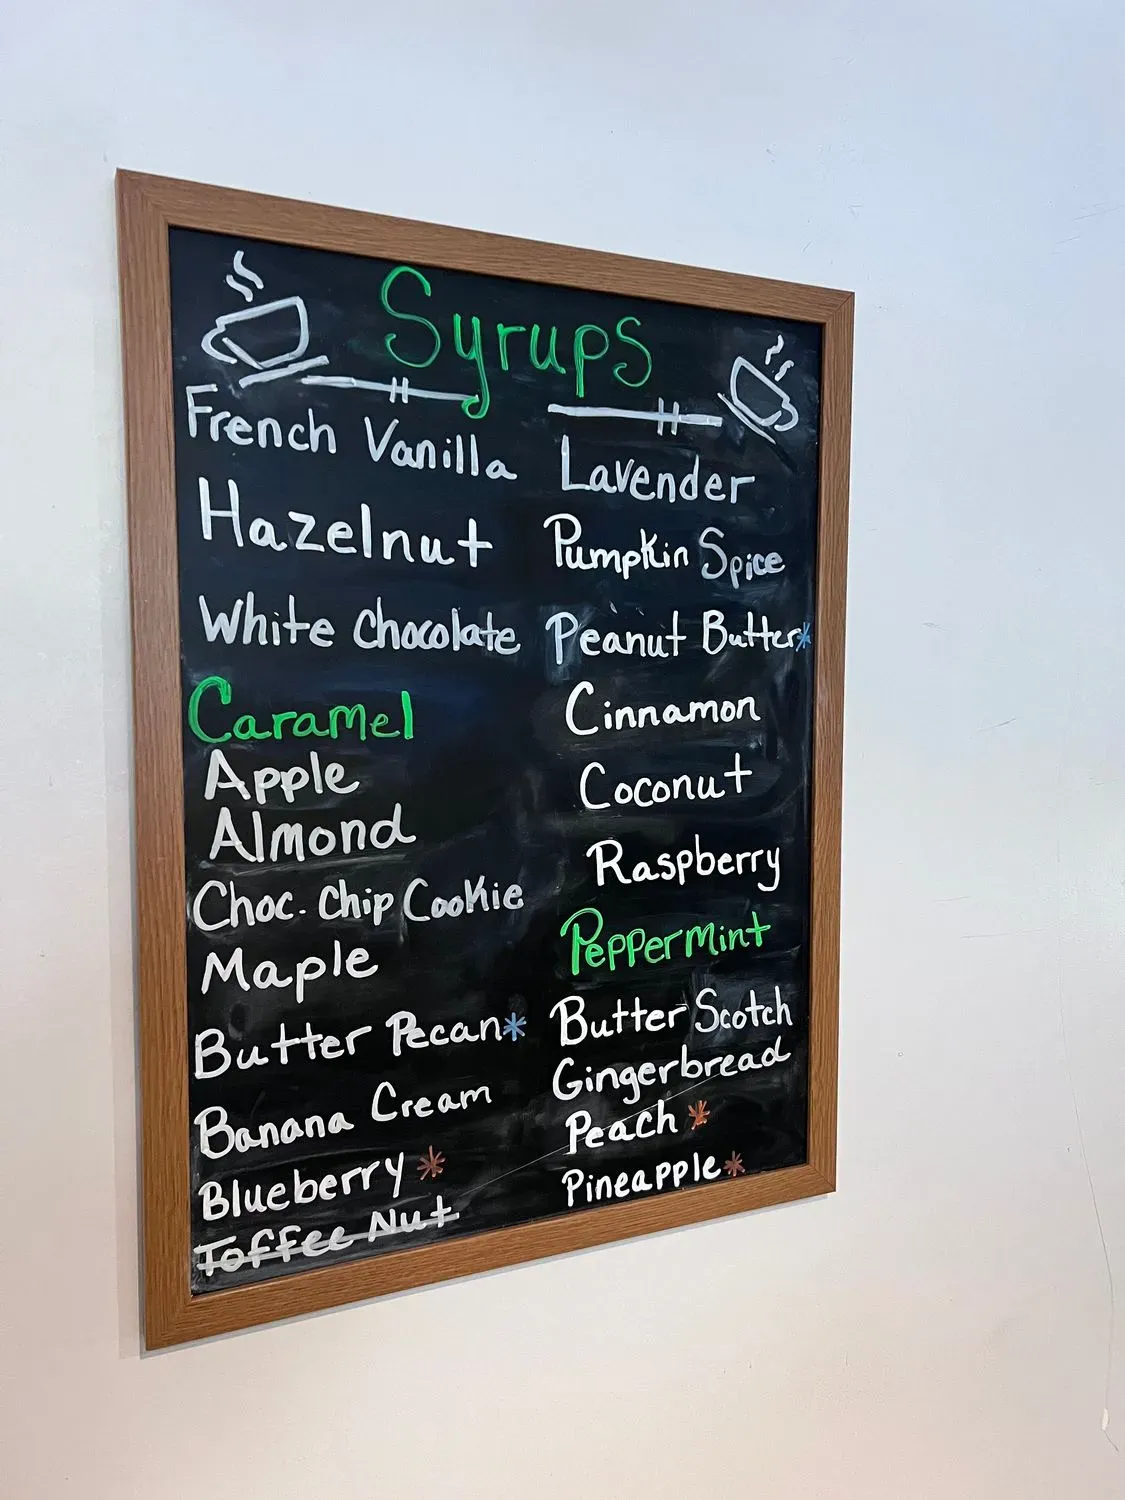 Syrups
French Vanilla
Hazelnut
White Chocolate
Caramel
Apple
Almond
Choc. Chip Cookie
Maple
Butter Pecan*
Banana Cream
Blueberry *
Toffee Nut
Lavender
Pumpkin Spice
Peanut Butter*
Cinnamon
Coconut
Raspberry
Peppermint
Butter Scotch
Gingerbread
Peach *
Pineapple*